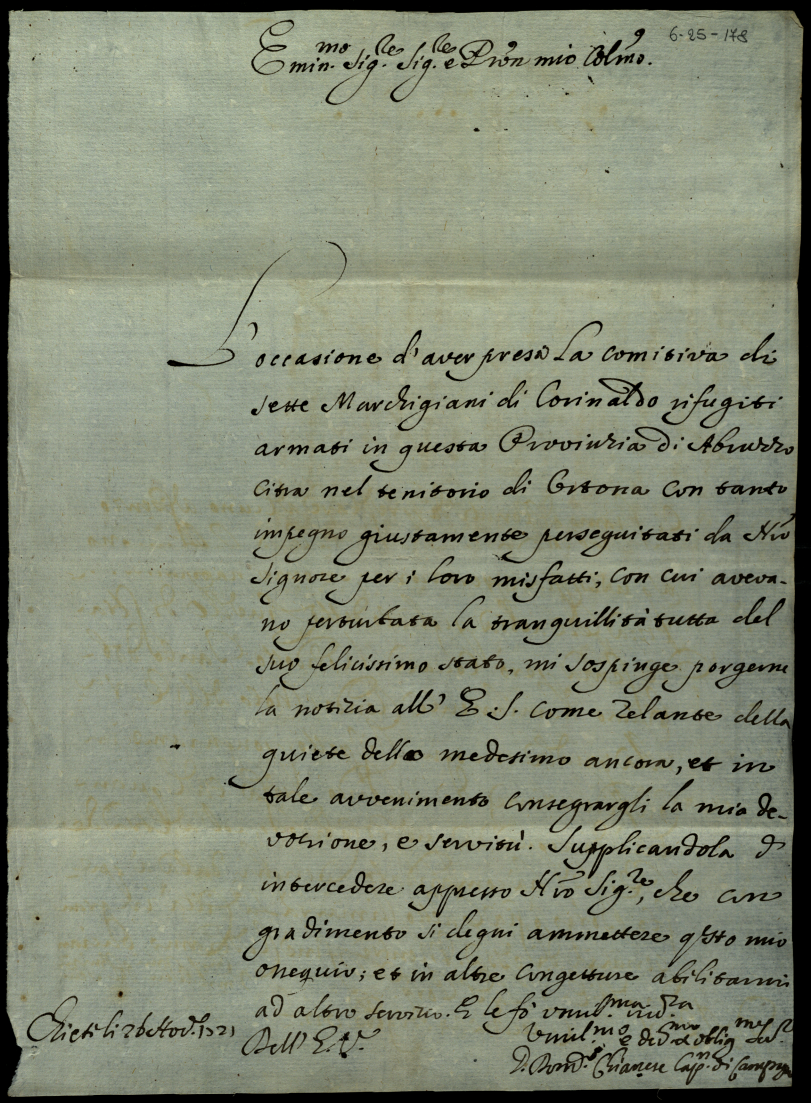 6-25-178
Emin.mo Sig.re Sig.re e Pron mio Colmo.
L'occasione d'aver presa la comitiva di
sette Marchigiani di Corinaldo rifugiti
armati in questa Provinzia di Abruzzo
Citra nel tenitorio di Ortona con tanto
impegno giustamente perseguitati da Nro
Signore per i loro misfatti, con cui aveva-
no perturbata la tranquillità tutta del
suo felicissimo stato, mi sospinge porgerne
la notizia all' E.S. come zelante della
quiete dello medesimo ancora, et in
tale avvenimento consegrargli la mia de-
vozione, e servitù. Supplicandola d'
intercedere appresso Nro Sig.re, che con
gradimento si degni ammettere q'sto mio
onequio; et in altre congetture abilitarmi
ad altro servizio. E le fo umil.ma riv.za
Chieti li 26 Nov. 1721
Dell' E.V.
Umil.mo e dev.mo et oblig.mo
Chianese Cap.n di Campag